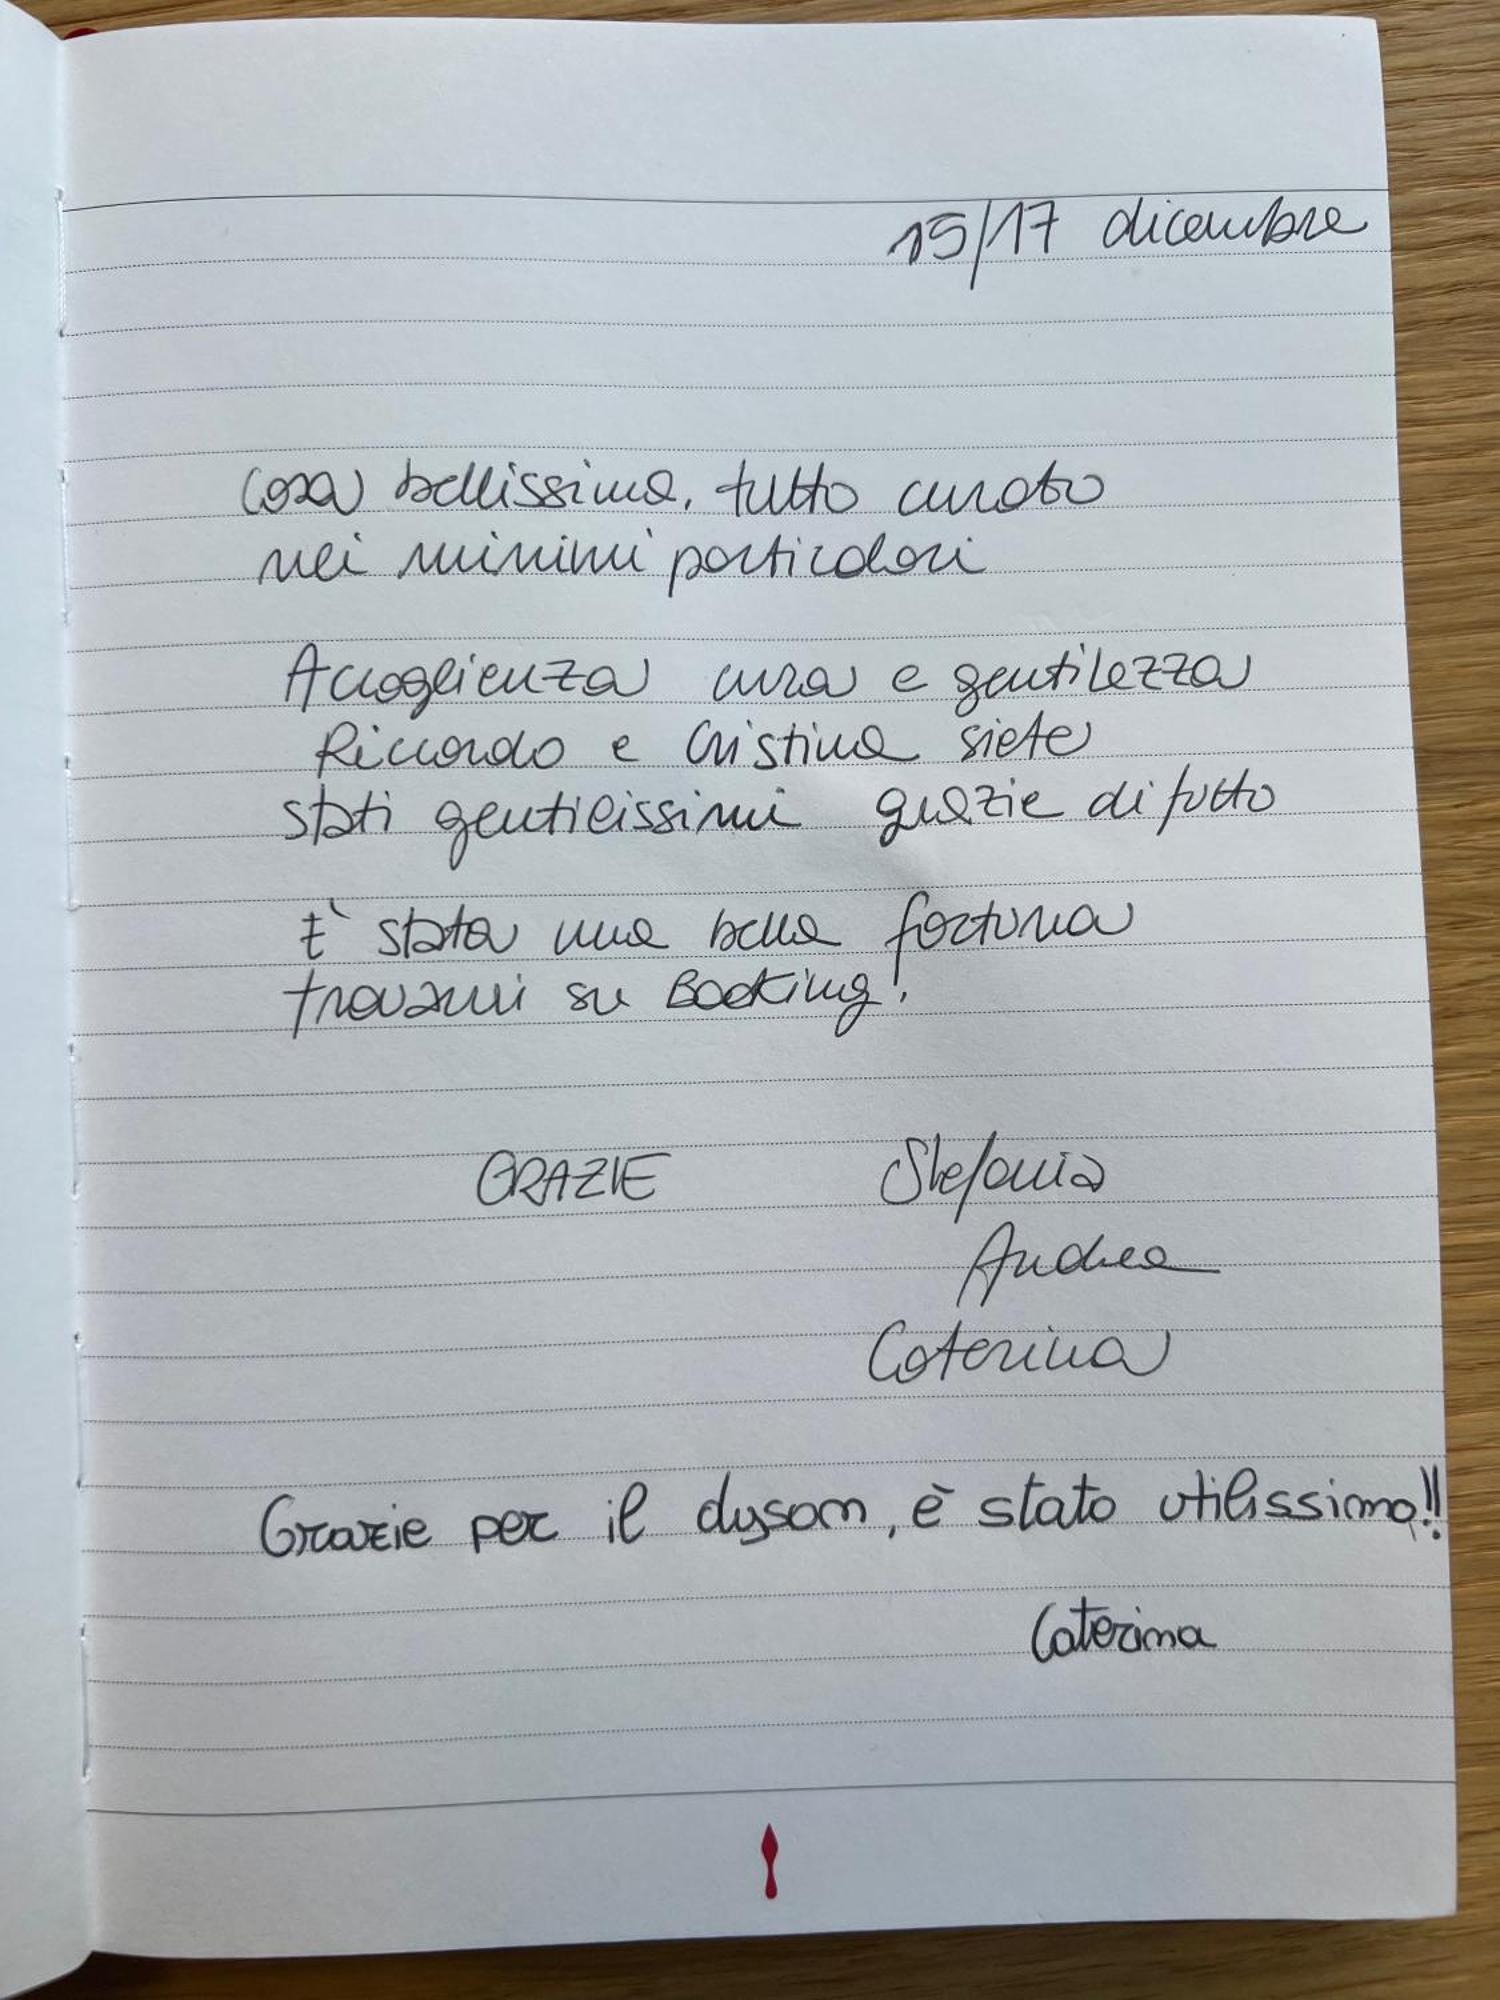 15/17 dicembre
Casa bellissima, tutto curato
nei minimi particolari
Accoglienza cura e gentilezza
Riccardo e Cristina siete
stati gentilissimi grazie di tutto
E' stata una bella fortuna
trovarvi su Booking!
GRAZIE Stefania
Andrea
Caterina
Grazie per il dyson, è stato utilissimo!!
Caterina